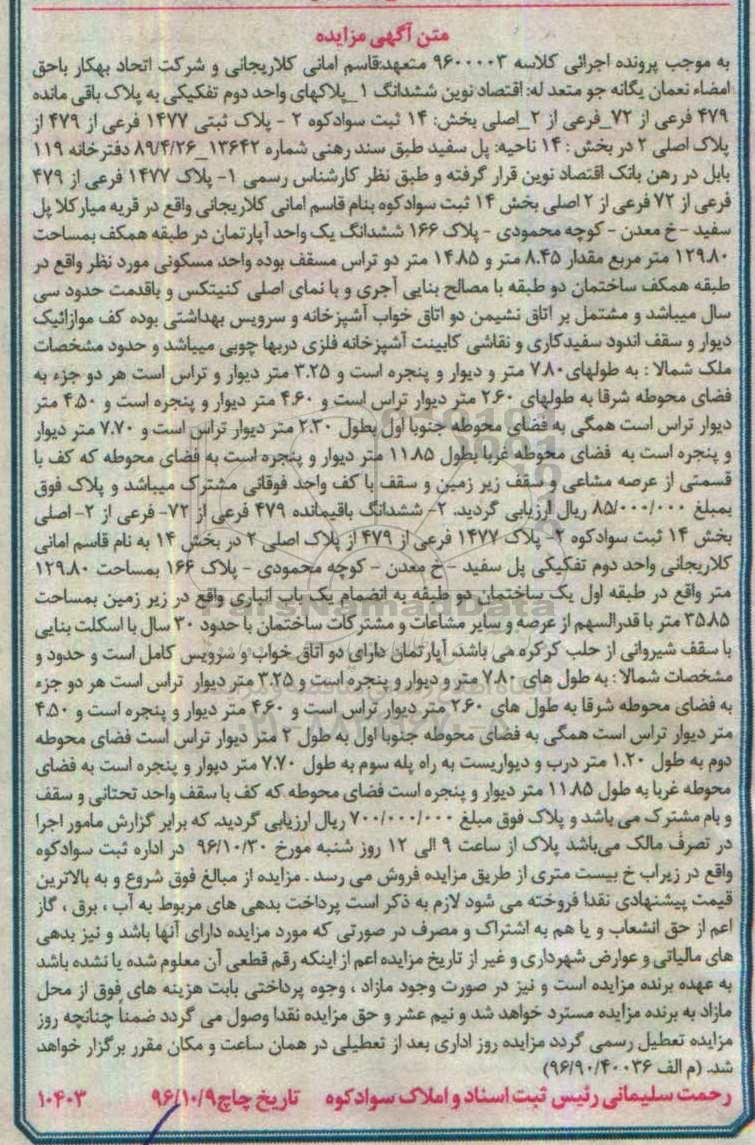 متن آگهی مزایده
به موجب پرونده اجرائی کلاسه ۹۶۰۰۰۰۳ متعهد:قاسم امانی کلاریجانی و شرکت اتحاد بهکار باحق
امضاء نعمان یگانه جو متعد له: اقتصاد نوین ششدانگ ۱_پلاکهای واحد دوم تفکیکی به پلاک باقی مانده
۴۷۹ فرعی از ۷۲_فرعی از ۲_اصلی بخش: ۱۴ ثبت سوادکوه ۲ - پلاک ثبتی ۱۴۷۷ فرعی از ۴۷۹ از
پلاک اصلی ۲ در بخش : ۱۴ ناحیه: پل سفید طبق سند رهنی شماره ۱۳۶۴۲_۸۹/۴/۲۶ دفترخانه ۱۱۹
بابل در رهن بانک اقتصاد نوین قرار گرفته و طبق نظر کارشناس رسمی ۱- پلاک ۱۴۷۷ فرعی از ۴۷۹
فرعی از ۷۲ فرعی از ۲ اصلی بخش ۱۴ ثبت سوادکوه بنام قاسم امانی کلاریجانی واقع در قریه میارکلا پل
سفید - خ معدن - کوچه محمودی - پلاک ۱۶۶ ششدانگ یک واحد آپارتمان در طبقه همکف بمساحت
۱۲۹.۸۰ متر مربع مقدار ۸.۴۵ متر و ۱۴.۸۵ متر دو تراس مسقف بوده واحد مسکونی مورد نظر واقع در
طبقه همکف ساختمان دو طبقه با مصالح بنایی آجری و با نمای اصلی کنیتکس و باقدمت حدود سی
سال میباشد و مشتمل بر اتاق نشیمن دو اتاق خواب آشپزخانه و سرویس بهداشتی بوده کف موازائیک
دیوار و سقف اندود سفیدکاری و نقاشی کابینت آشپزخانه فلزی دربها چوبی میباشد و حدود مشخصات
ملک شمالا : به طولهای ۷.۸۰ متر و دیوار و پنجره است و ۳.۲۵ متر دیوار و تراس است هر دو جزء به
فضای محوطه شرقا به طولهای ۲.۶۰ متر دیوار تراس است و ۴.۶۰ متر دیوار و پنجره است و ۴.۵۰ متر
دیوار تراس است همگی به فضای محوطه جنوبا اول بطول ۲.۳۰ متر دیوار تراس است و ۷.۷۰ متر دیوار
و پنجره است به فضای محوطه غربا بطول ۱۱.۸۵ متر دیوار و پنجره است به فضای محوطه که کف با
قسمتی از عرصه مشاعی و سقف زیر زمین و سقف با کف واحد فوقانی مشترک میباشد و پلاک فوق
بمبلغ ۸۵/۰۰۰/۰۰۰ ریال ارزیابی گردید. ۲- ششدانگ باقیمانده ۴۷۹ فرعی از ۷۲- فرعی از ۲- اصلی
بخش ۱۴ ثبت سوادکوه ۲- پلاک ۱۴۷۷ فرعی از ۴۷۹ از پلاک اصلی ۲ در بخش ۱۴ به نام قاسم امانی
کلاریجانی واحد دوم تفکیکی پل سفید - خ معدن - کوچه محمودی - پلاک ۱۶۶ بمساحت ۱۲۹.۸۰
متر واقع در طبقه اول یک ساختمان دو طبقه به انضمام یک باب انباری واقع در زیر زمین بمساحت
۳۵.۸۵ متر با قدرالسهم از عرصه و سایر مشاعات و مشترکات ساختمان با حدود ۳۰ سال با اسکلت بنایی
با سقف شیروانی از حلب کرکره می باشد، آپارتمان دارای دو اتاق خواب و سرویس کامل است و حدود و
مشخصات شمالا : به طول های ۷.۸۰ متر و دیوار و پنجره است و ۳.۲۵ متر دیوار تراس است هر دو جزء
به فضای محوطه شرقا به طول های ۲.۶۰ متر دیوار تراس است و ۴.۶۰ متر دیوار و پنجره است و ۴.۵۰
متر دیوار تراس است همگی به فضای محوطه جنوبا اول به طول ۲ متر دیوار تراس است فضای محوطه
دوم به طول ۱.۲۰ متر درب و دیواریست به راه پله سوم به طول ۷.۷۰ متر دیوار و پنجره است به فضای
محوطه غربا به طول ۱۱.۸۵ متر دیوار و پنجره است فضای محوطه که کف با سقف واحد تحتانی و سقف
و بام مشترک می باشد و پلاک فوق مبلغ ۷۰۰/۰۰۰/۰۰۰ ریال ارزیابی گردید. که برابر گزارش مامور اجرا
در تصرف مالک می‌باشد پلاک از ساعت ۹ الی ۱۲ روز شنبه مورخ ۹۶/۱۰/۳۰ در اداره ثبت سوادکوه
واقع در زیراب خ بیست متری از طریق مزایده فروش می رسد . مزایده از مبالغ فوق شروع و به بالاترین
قیمت پیشنهادی نقدا فروخته می شود لازم به ذکر است پرداخت بدهی های مربوط به آب ، برق ، گاز
اعم از حق انشعاب و یا هم به اشتراک و مصرف در صورتی که مورد مزایده دارای آنها باشد و نیز بدهی
های مالیاتی و عوارض شهرداری و غیر از تاریخ مزایده اعم از اینکه رقم قطعی آن معلوم شده یا نشده باشد
به عهده برنده مزایده است و نیز در صورت وجود مازاد ، وجوه پرداختی بابت هزینه های فوق از محل
مازاد به برنده مزایده مسترد خواهد شد و نیم عشر و حق مزایده نقدا وصول می گردد ضمناً چنانچه روز
مزایده تعطیل رسمی گردد مزایده روز اداری بعد از تعطیلی در همان ساعت و مکان مقرر برگزار خواهد
شد. (م الف ۹۶/۹۰/۴۰۰۳۶)
رحمت سلیمانی رئیس ثبت اسناد و املاک سوادکوه تاریخ چاپ ۹۶/۱۰/۹ ۱۰۴۰۳
ParsNamadData